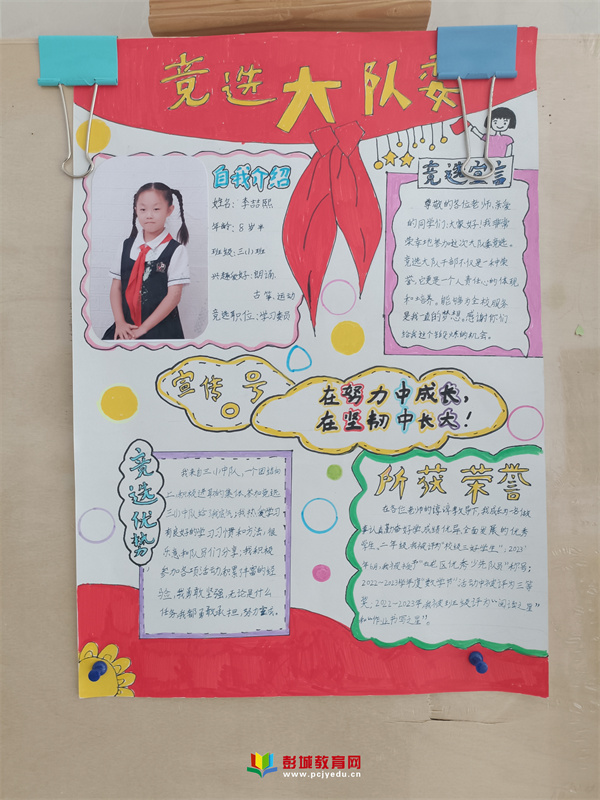 竞选大队委
自我介绍
姓名:李喆熙
年龄:8岁半
班级:三(1)班
兴趣爱好:朗诵、
古筝、运动
竞选职位:学习委员
竞选宣言
尊敬的各位老师、亲爱
的同学们:大家好!我非常
荣幸地参加这次大队委竞选。
竞选大队干部不仅是一种荣
誉,也更是一个人责任心的体现
和培养。能够为全校服务
是我一直的梦想。感谢你们
给我这个锻炼的机会。
宣传口号
在努力中成长,
在坚韧中长大!
竞选优势
我来自三(1)中队,一个团结向
上、积极进取的集体,
三(1)中队给了我自信;我热爱学习
有良好的学习习惯和方法,很
乐意和队员们分享;我积极
参加各项活动,积累丰富的经
验,我勇敢坚强,无论是什么
任务我都勇敢承担,努力
所获荣誉
在各位老师的谆谆教导下,我成长为一名做
事认真勤奋好学,成绩优异,全面发展的优秀
学生。二年级我被评为“校级三好学生”;2023
年6月我被授予“区优秀少先队员”称号;
2022-2023学年度“数学节”活动中被评为三等
奖,2022-2023年我被班级评为“阅读之星”
和“作业书写之星”。
彭城教育网
www.pcjyedu.cn